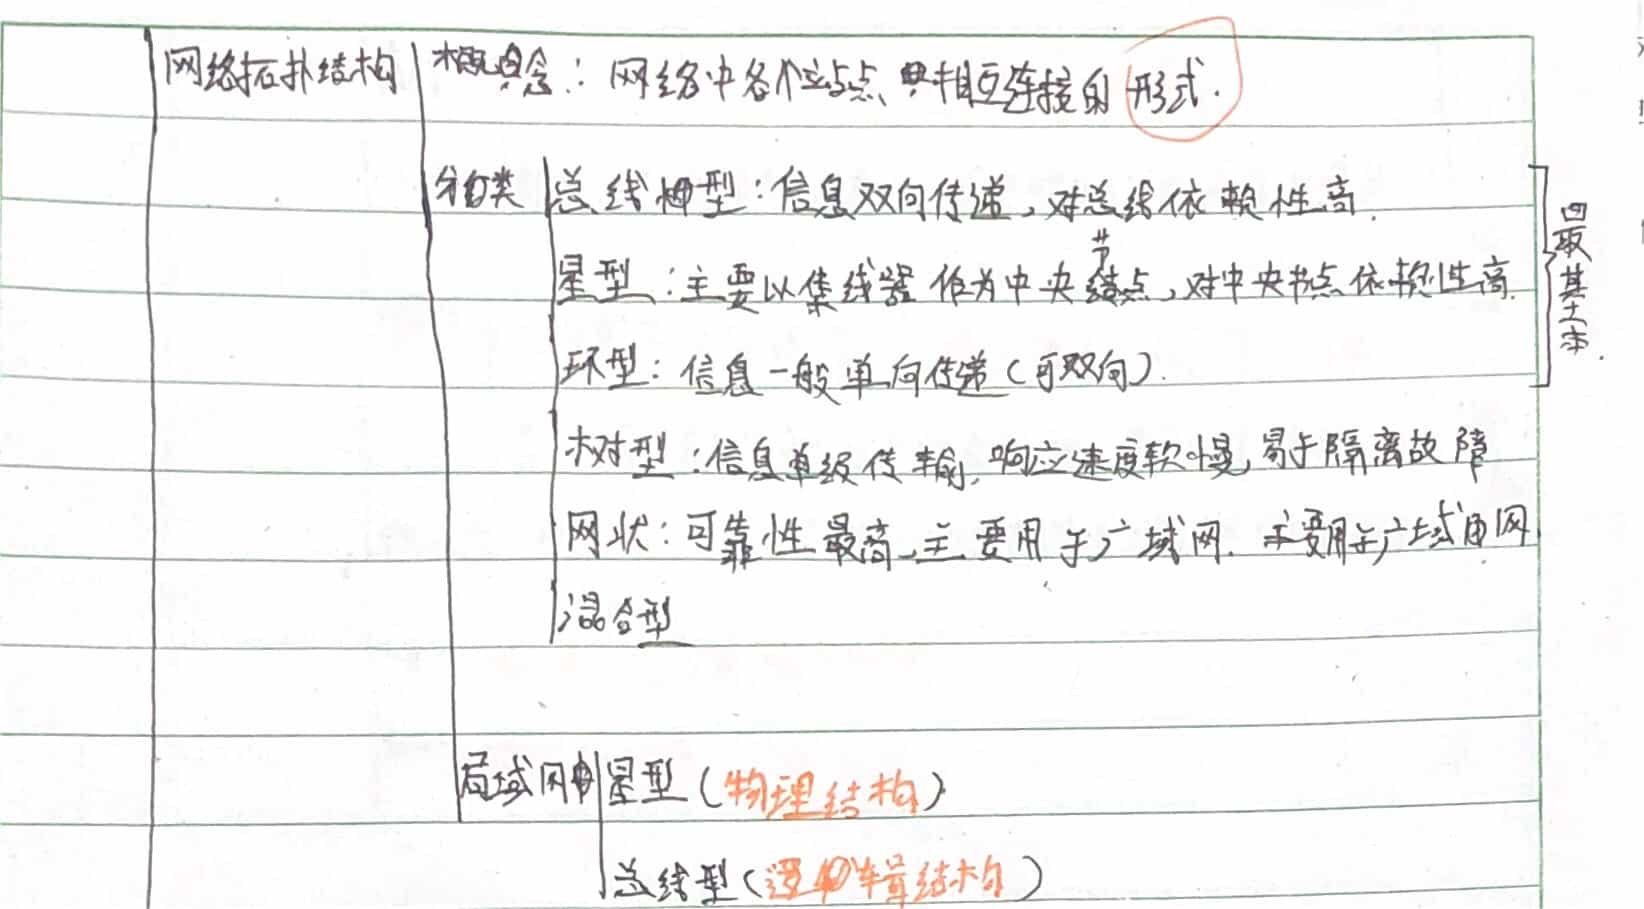 网络拓扑结构 概念：网络中各个站点相互连接的形式.
分类 总线型：信息双向传递，对总线依赖性高.
节
星型：主要以集线器作为中央结点，对中央节点依赖性高.
环型：信息一般单向传递（可双向）.
树型：信息单级传输，响应速度较慢，易于隔离故障
网状：可靠性最高，主要用于广域网. 主要用于广域网
混合型
最基本.
局域网中 星型（物理结构）
总线型（逻辑结构）